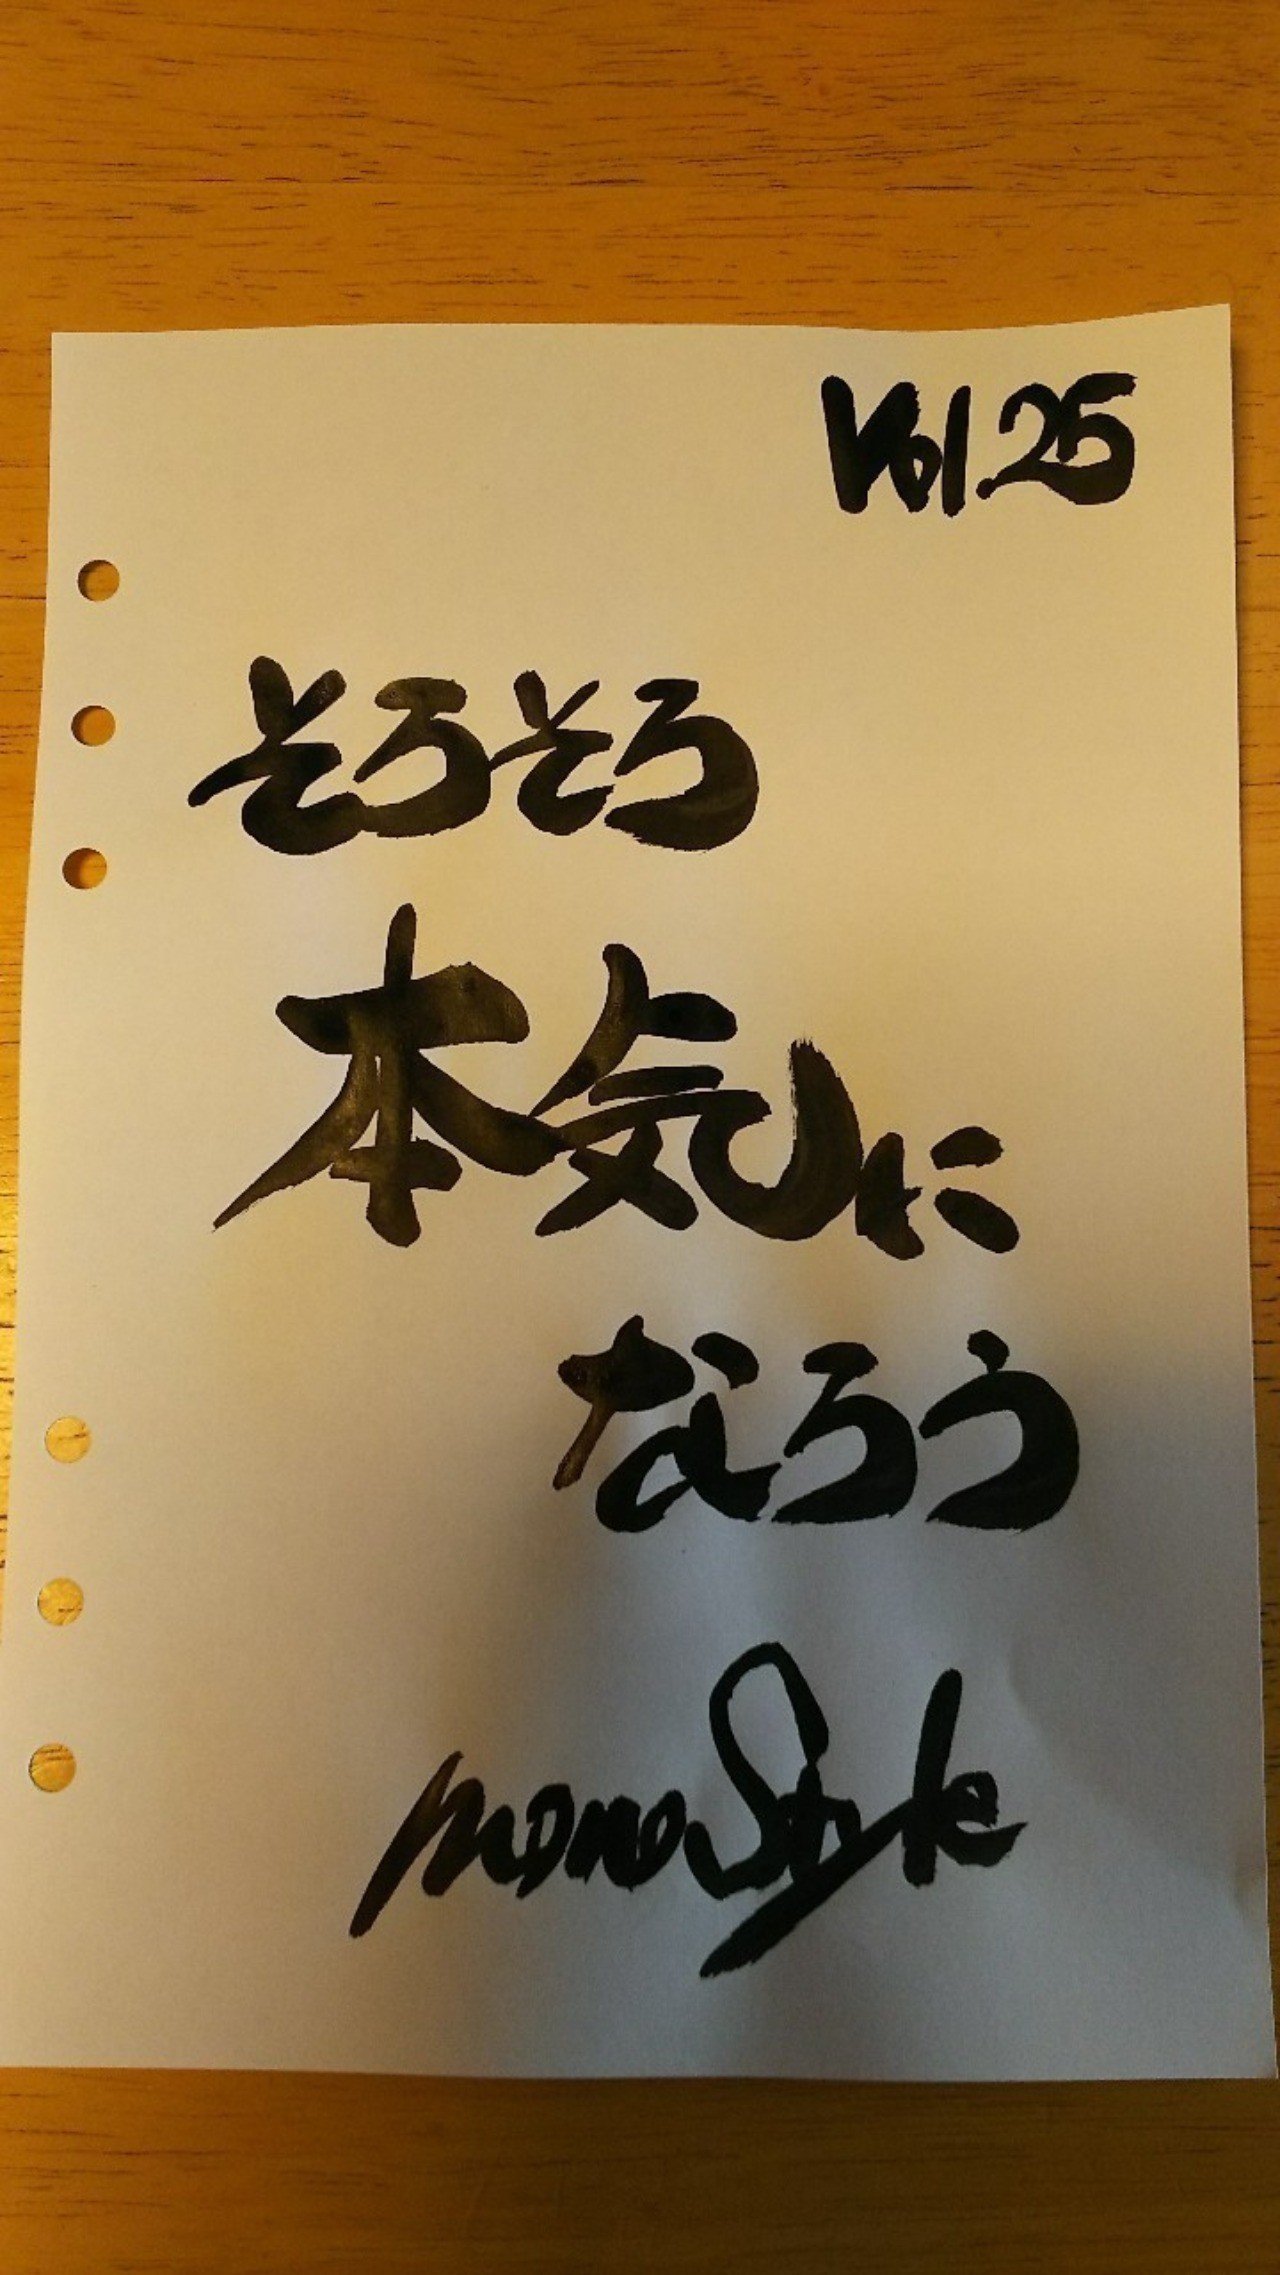 Vol.25
そろそろ
本気に
なろう
monoStyle